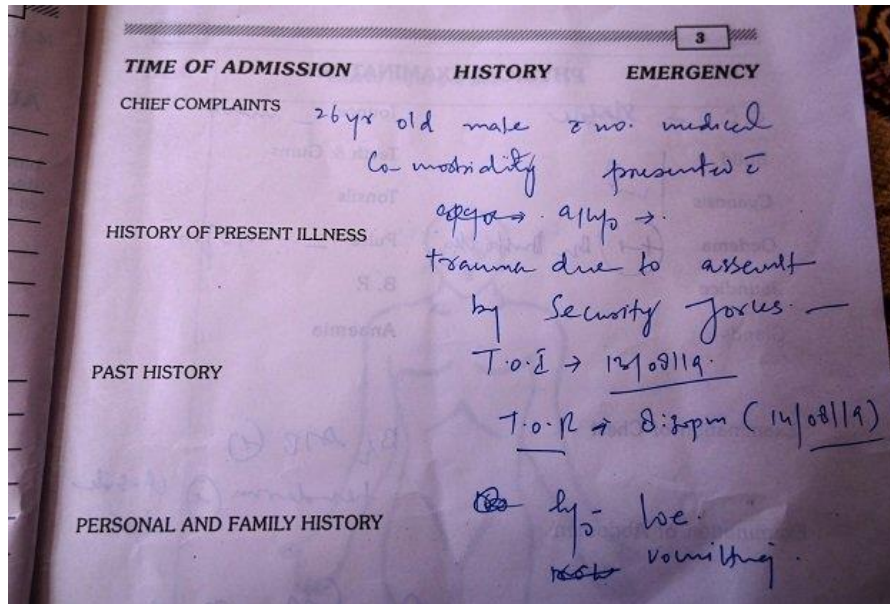 3
TIME OF ADMISSION HISTORY EMERGENCY
CHIEF COMPLAINTS
26 yr old male c̄ no. medical
Co-morbidity presented c̄
HISTORY OF PRESENT ILLNESS
trauma due to assault
by Security forces. —
PAST HISTORY
T.O.I → 13/08/19.
T.O.R → 8:30pm (14/08/19)
PERSONAL AND FAMILY HISTORY
h/o LOC.
vomitting.